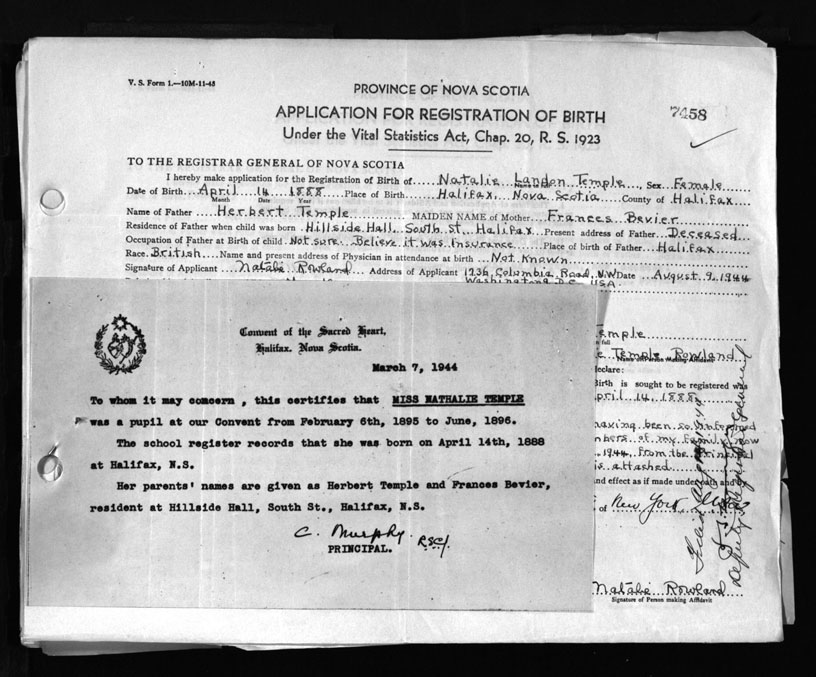 V. S. Form 1.—10M-11-43
PROVINCE OF NOVA SCOTIA
APPLICATION FOR REGISTRATION OF BIRTH
7458
Under the Vital Statistics Act, Chap. 20, R. S. 1923
TO THE REGISTRAR GENERAL OF NOVA SCOTIA
I hereby make application for the Registration of Birth of Natalie Landon Temple Sex Female
Name in full
Date of Birth April 14 1888 Place of Birth Halifax, Nova Scotia County of Halifax
Month Date Year
Name of Father Herbert Temple MAIDEN NAME of Mother Frances Bevier
Residence of Father when child was born Hillside Hall, South St. Halifax Present address of Father Deceased
Occupation of Father at Birth of child Not sure. Believe it was Insurance Place of birth of Father Halifax
Race British Name and present address of Physician in attendance at birth Not Known
Signature of Applicant Natalie Rowland Address of Applicant 1736 Columbia Road, N.W. Date August 9, 1944
Washington, D.C. USA
Temple
Temple Rowland
Name of Person Making Affidavit
declare:
Birth is sought to be registered was
April 14, 1888
having been so informed
members of my family now
1944, from the Principal
is attached
and effect as if made under oath and
of New York
Natalie Rowland
Signature of Person making Affidavit
Deputy Registrar General
Convent of the Sacred Heart,
Halifax, Nova Scotia.
March 7, 1944
To whom it may concern , this certifies that MISS NATHALIE TEMPLE
was a pupil at our Convent from February 6th, 1895 to June, 1896.
The school register records that she was born on April 14th, 1888
at Halifax, N.S.
Her parents' names are given as Herbert Temple and Frances Bevier,
resident at Hillside Hall, South St., Halifax, N.S.
C. Murphy RSCJ.
PRINCIPAL.